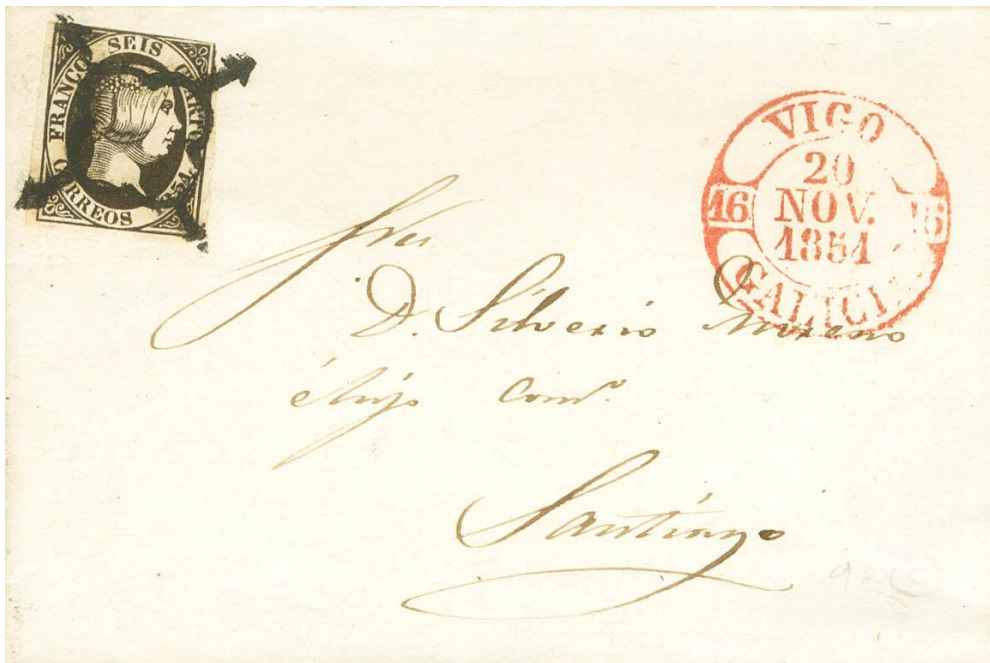 FRANCO SEIS CUARTOS
CORREOS 1851
VIGO
20
NOV.
1851
16 16
GALICIA
Sres
D. Silverio Moreno
é hijo Comº
Santiago